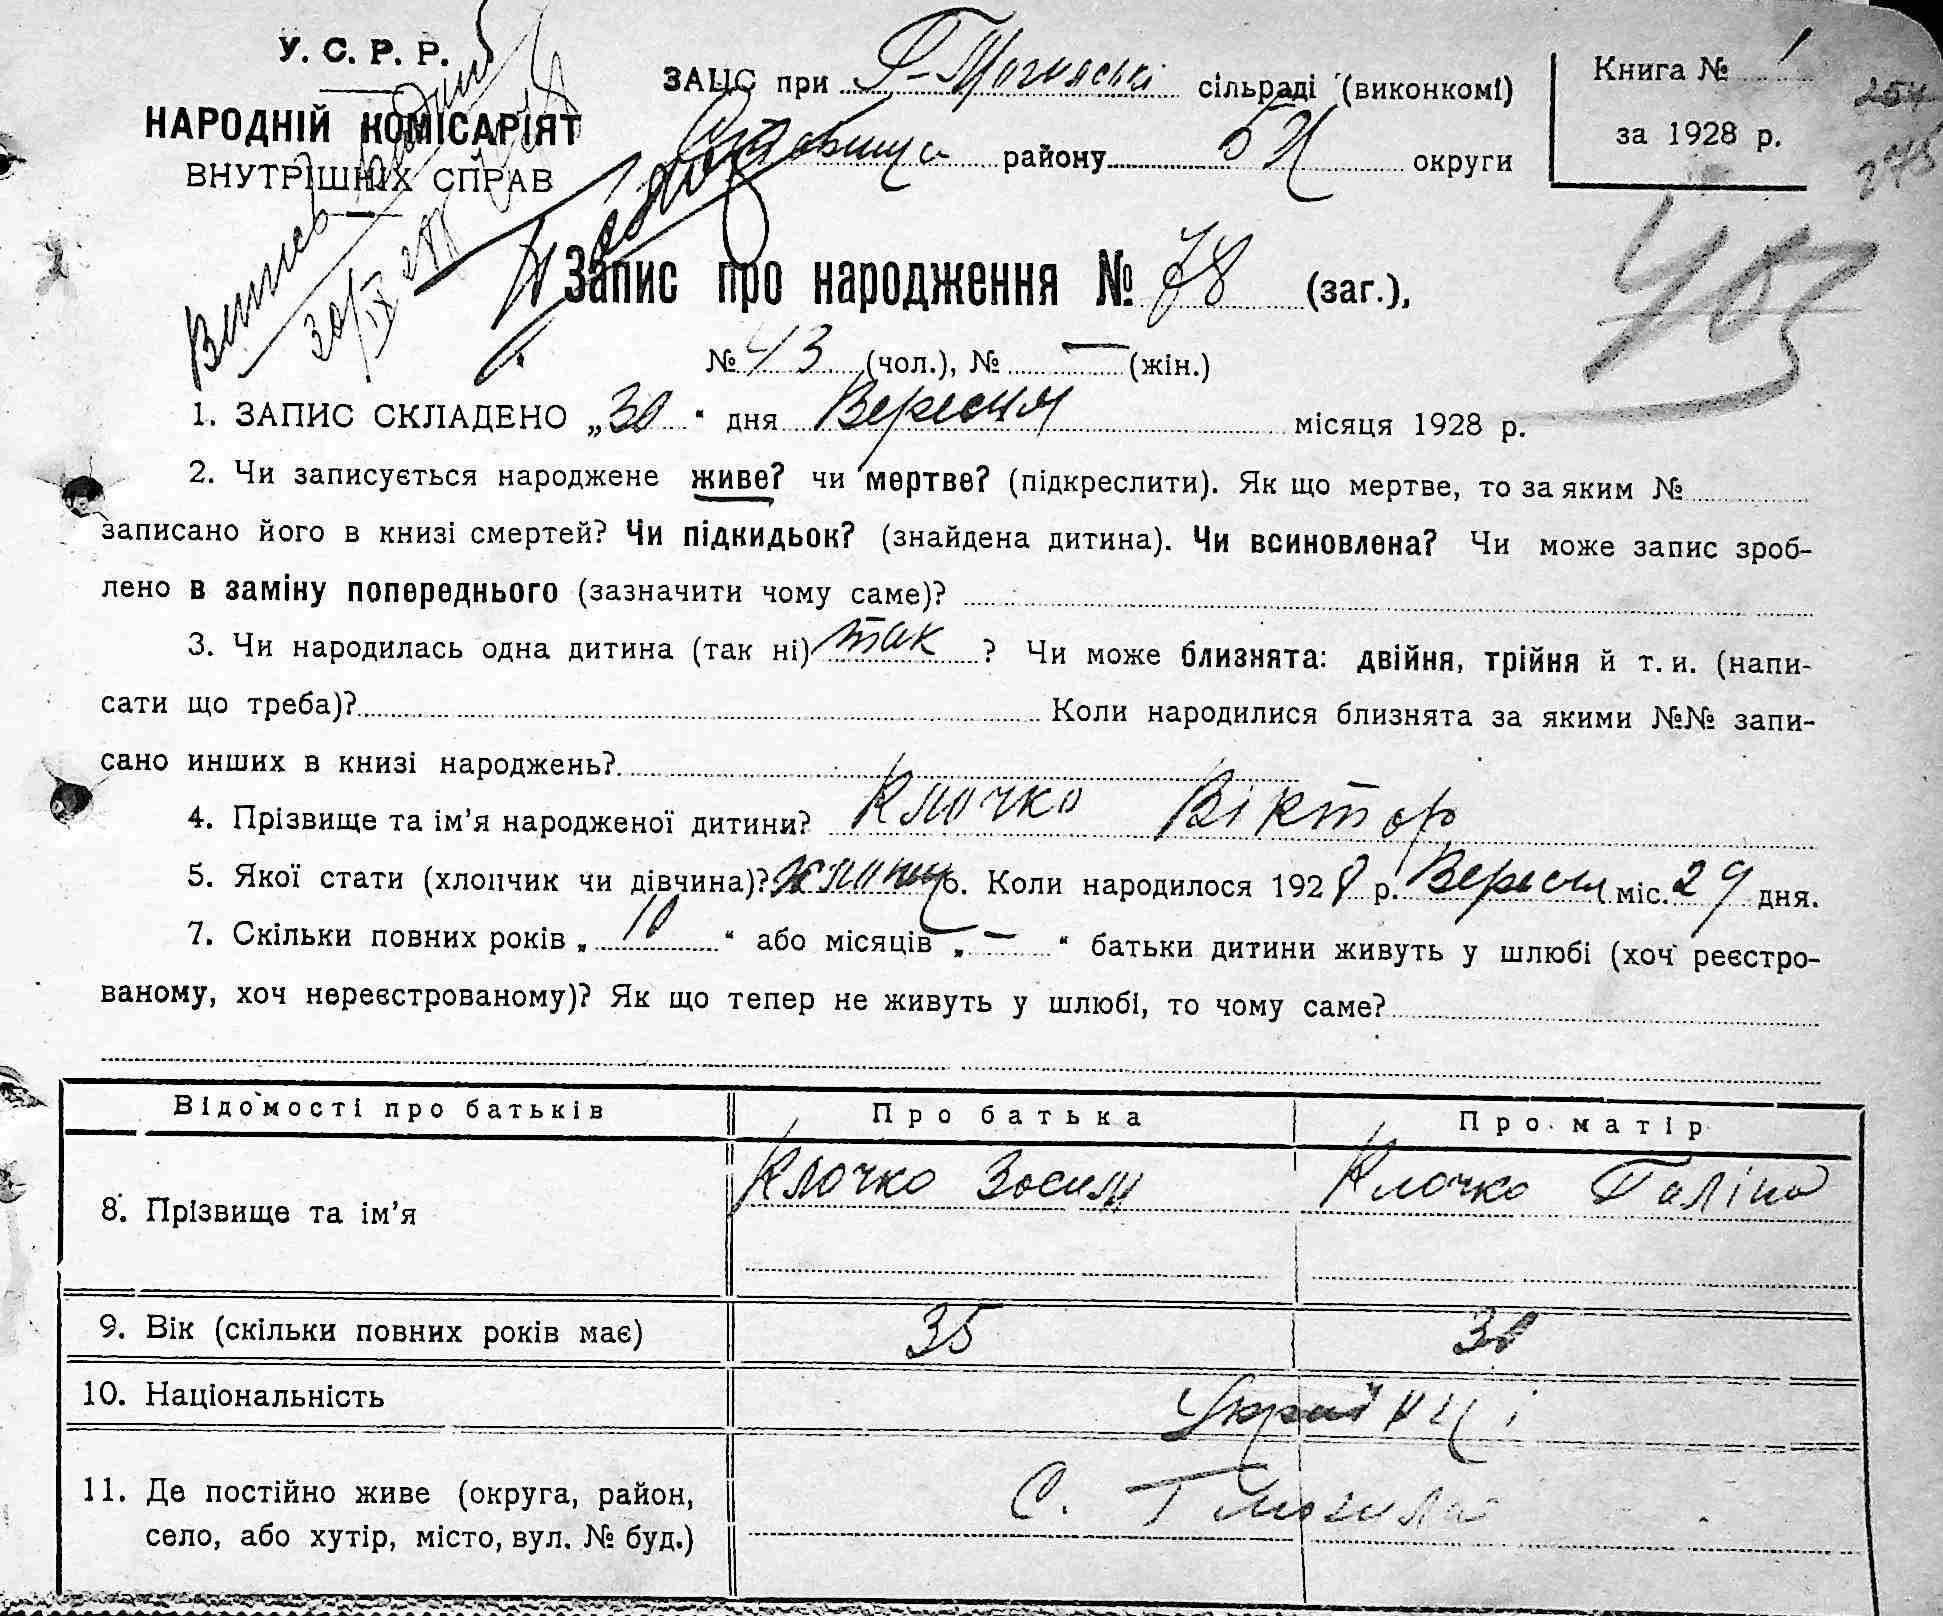 У. С. Р. Р.
НАРОДНІЙ КОМІСАРІЯТ
ВНУТРІШНІХ СПРАВ
ЗАЦС при сільраді (виконкомі)
району БЦ округи
Книга № 1
за 1928 р.
254
Витяг видано
30/IX
Запис про народження № 78 (заг.),
№ 43 (чол.), № — (жін.)
1. ЗАПИС СКЛАДЕНО „30“ дня Вересня місяця 1928 р.
2. Чи записується народжене живе? чи мертве? (підкреслити). Як що мертве, то за яким №
записано його в книзі смертей? Чи підкидьок? (знайдена дитина). Чи всиновлена? Чи може запис зроб-
лено в заміну попереднього (зазначити чому саме)?
3. Чи народилась одна дитина (так ні) так ? Чи може близнята: двійня, трійня й т. и. (напи-
сати що треба)? Коли народилися близнята за якими №№ запи-
сано инших в книзі народжень?
4. Прізвище та ім’я народженої дитини? Клочко Віктор
5. Якої стати (хлопчик чи дівчина)? хлопець 6. Коли народилося 1928 р. Вересня міс. 29 дня.
7. Скільки повних років „ 10 “ або місяців „ — “ батьки дитини живуть у шлюбі (хоч реєстро-
ваному, хоч нереєстрованому)? Як що тепер не живуть у шлюбі, то чому саме?
Відомості про батьків Про батька Про матір
8. Прізвище та ім’я Клочко Зосим Клочко Галіна
9. Вік (скільки повних років має) 35 30
10. Національність Українці
11. Де постійно живе (округа, район,
село, або хутір, місто, вул. № буд.) С. Т Могила